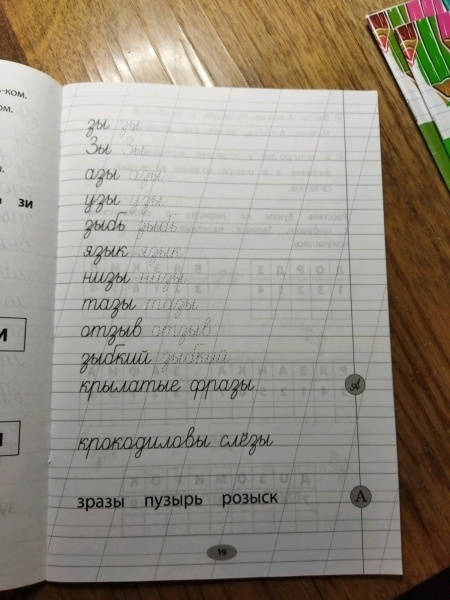 -ком.
ом.
зи
и
зы зы
Зы Зы
азы азы
узы узы
зыбь зыбь
язык язык
низы низы
тазы тазы
отзыв отзыв
зыбкий зыбкий
крылатые фразы
А
крокодиловы слёзы
зразы пузырь розыск
А
19